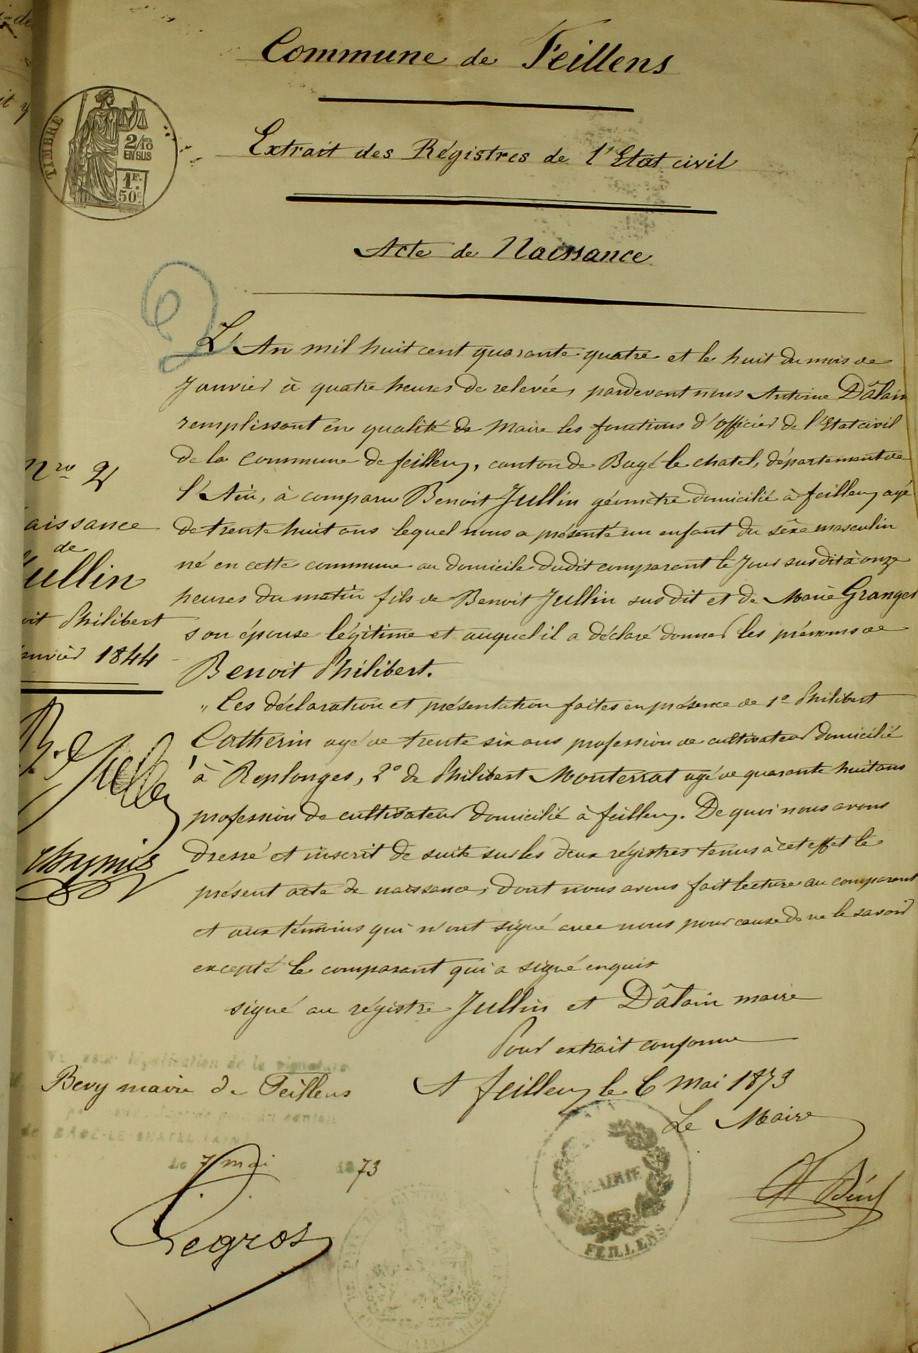 Commune de Feillens
Extrait des Régistres de l'Etat civil
TIMBRE
2/10
EN SUS
1 F.
50 C
Acte de Naissance
2
L'An mil huit cent quarante quatre et le huit du mois de
Janvier à quatre heures de relevée, pardevant nous Antoine Dâlain
remplissant en qualité de Maire les fonctions d'officier de l'Etat civil
de la commune de feillens, canton de Bagé le chatel, département de
l'Ain, à comparu Benoit Jullin géomètre domicilié à feillens, agé
de trente huit ans lequel nous a présenté un enfant du sèxe masculin
né en cette commune au domicile dudit comparant le Jour susdit à onze
heures du matin fils de Benoit Jullin susdit et de Marie Granger
son épouse légitime et auquel il a déclaré donner les prénoms de
Benoit Philibert.
Les déclaration et présentation faites en présence de 1° Philibert
Catherin agé de trente six ans profession de cultivateur domicilié
à Replonges, 2° de Philibert Monterrat agé de quarante huit ans
profession de cultivateur domicilié à feillens. De quoi nous avons
dressé et inscrit de suite sur les deux régistres tenus à cet effet le
présent acte de naissance, dont nous avons fait lecture au comparant
et aux témoins qui n'ont signé avec nous pour cause de ne le savoir
excepté le comparant qui a signé enquis
signé au régistre Jullin et Dâlain maire
Pour extrait conforme
A feillens le 6 Mai 1873
Le Maire
Nro 2
aissance
de
Jullin
oit Philibert
anvier 1844
légalisation de la signature
Bevy maire de Feillens
de BAGÉ-LE-CHATEL (AIN)
le 7 mai 1873
Legros
MAIRIE
FEILLENS